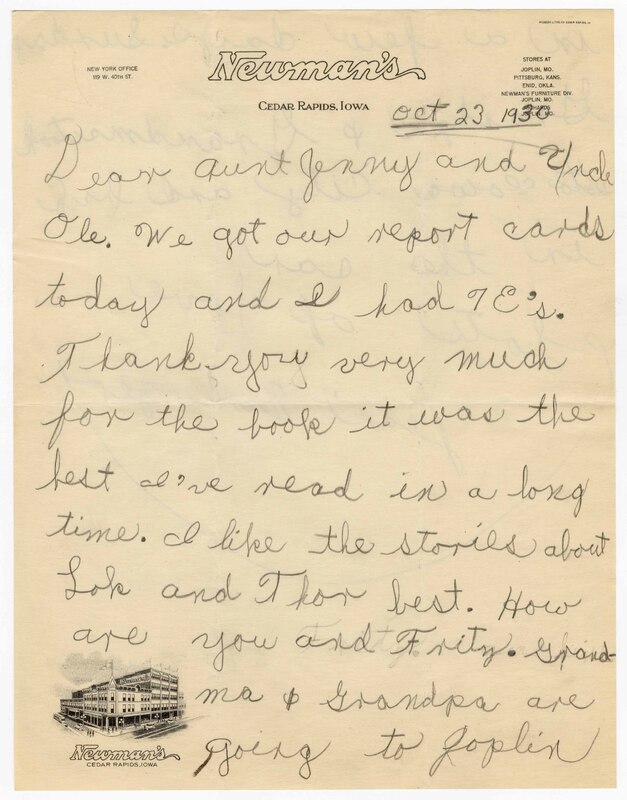 NEW YORK OFFICE
119 W. 40TH ST.
Newman's
CEDAR RAPIDS, IOWA
STORES AT
JOPLIN, MO.
PITTSBURG, KANS.
ENID, OKLA.
NEWMAN'S FURNITURE DIV.
JOPLIN, MO.
JOPLIN, MO.
Oct 23 1930
Dear Aunt Jenny and Uncle
Ole. We got our report cards
today and I had 7 E's.
Thank you very much
for the book it was the
best I've read in a long
time. I like the stories about
Lok and Thor best. How
are you and Fritz. Grand-
ma & Grandpa are
going to Joplin
Newman's
CEDAR RAPIDS, IOWA